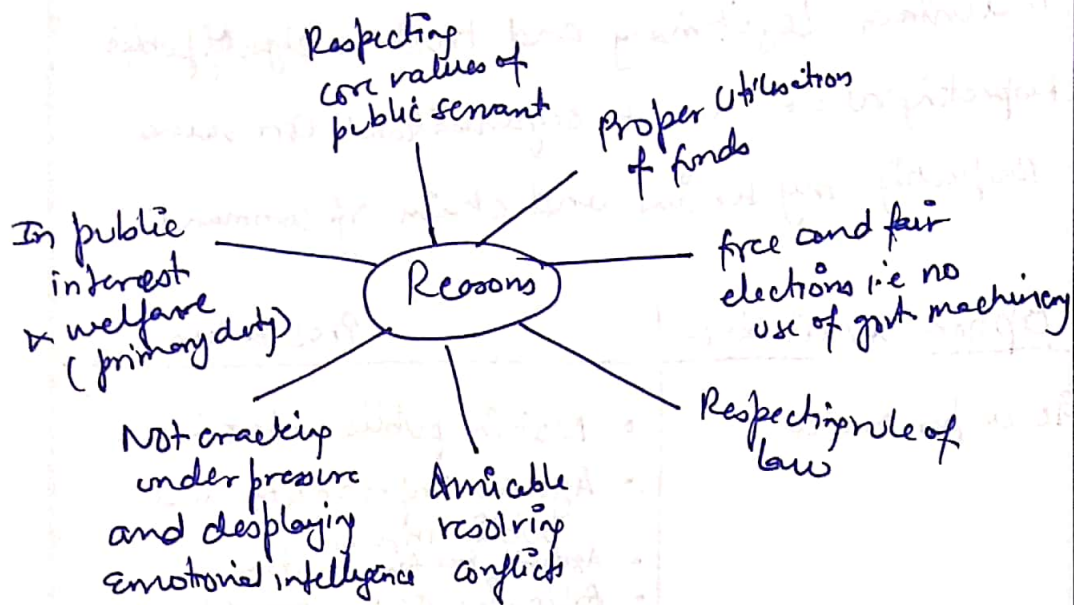 Respecting
core values of
public servant
Proper Utilisation
of funds
free and fair
elections i.e no
use of govt machinery
Respecting rule of
law
Amicable
resolving
conflicts
Not cracking
under pressure
and displaying
Emotional intelligence
In public
interest
& welfare
(primary duty)
Reasons